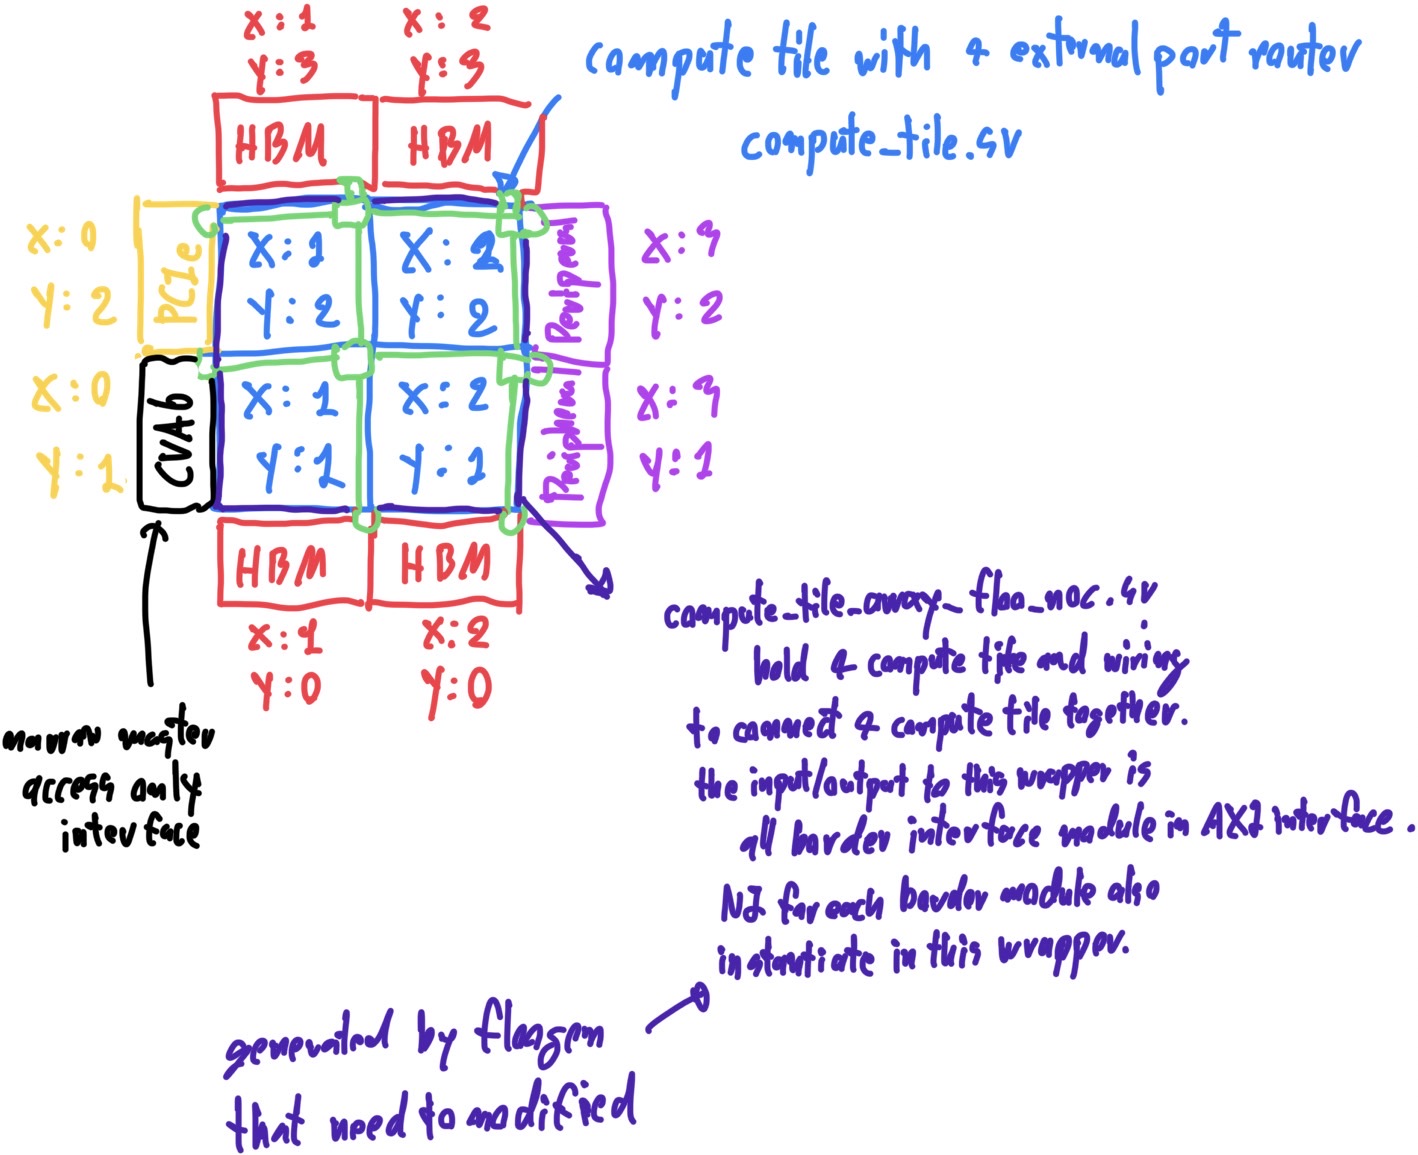 X:1 X:2
Y:3 Y:3
compute tile with 4 external port router
compute_tile.sv
HBM HBM
X:0
Y:2
PCIe
X:1
Y:2
X:2
Y:2
Peripheral
X:3
Y:2
X:0
Y:1
CVA6
X:1
Y:1
X:2
Y:1
Peripheral
X:3
Y:1
HBM HBM
X:1 X:2
Y:0 Y:0
narrow master
access only
interface
compute_tile_array_floo_noc.sv
hold 4 compute tile and wiring
to connect 4 compute tile together.
the input/output to this wrapper is
all border interface module in AXI interface.
NI for each border module also
instantiate in this wrapper.
generated by floogen
that need to modified